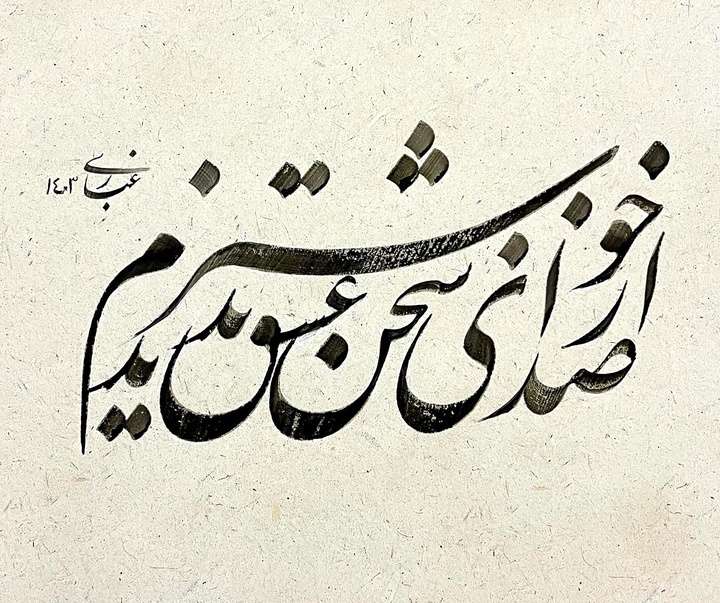 از صدای سخن عشق ندیدم خوشتر
۱۴۰۳